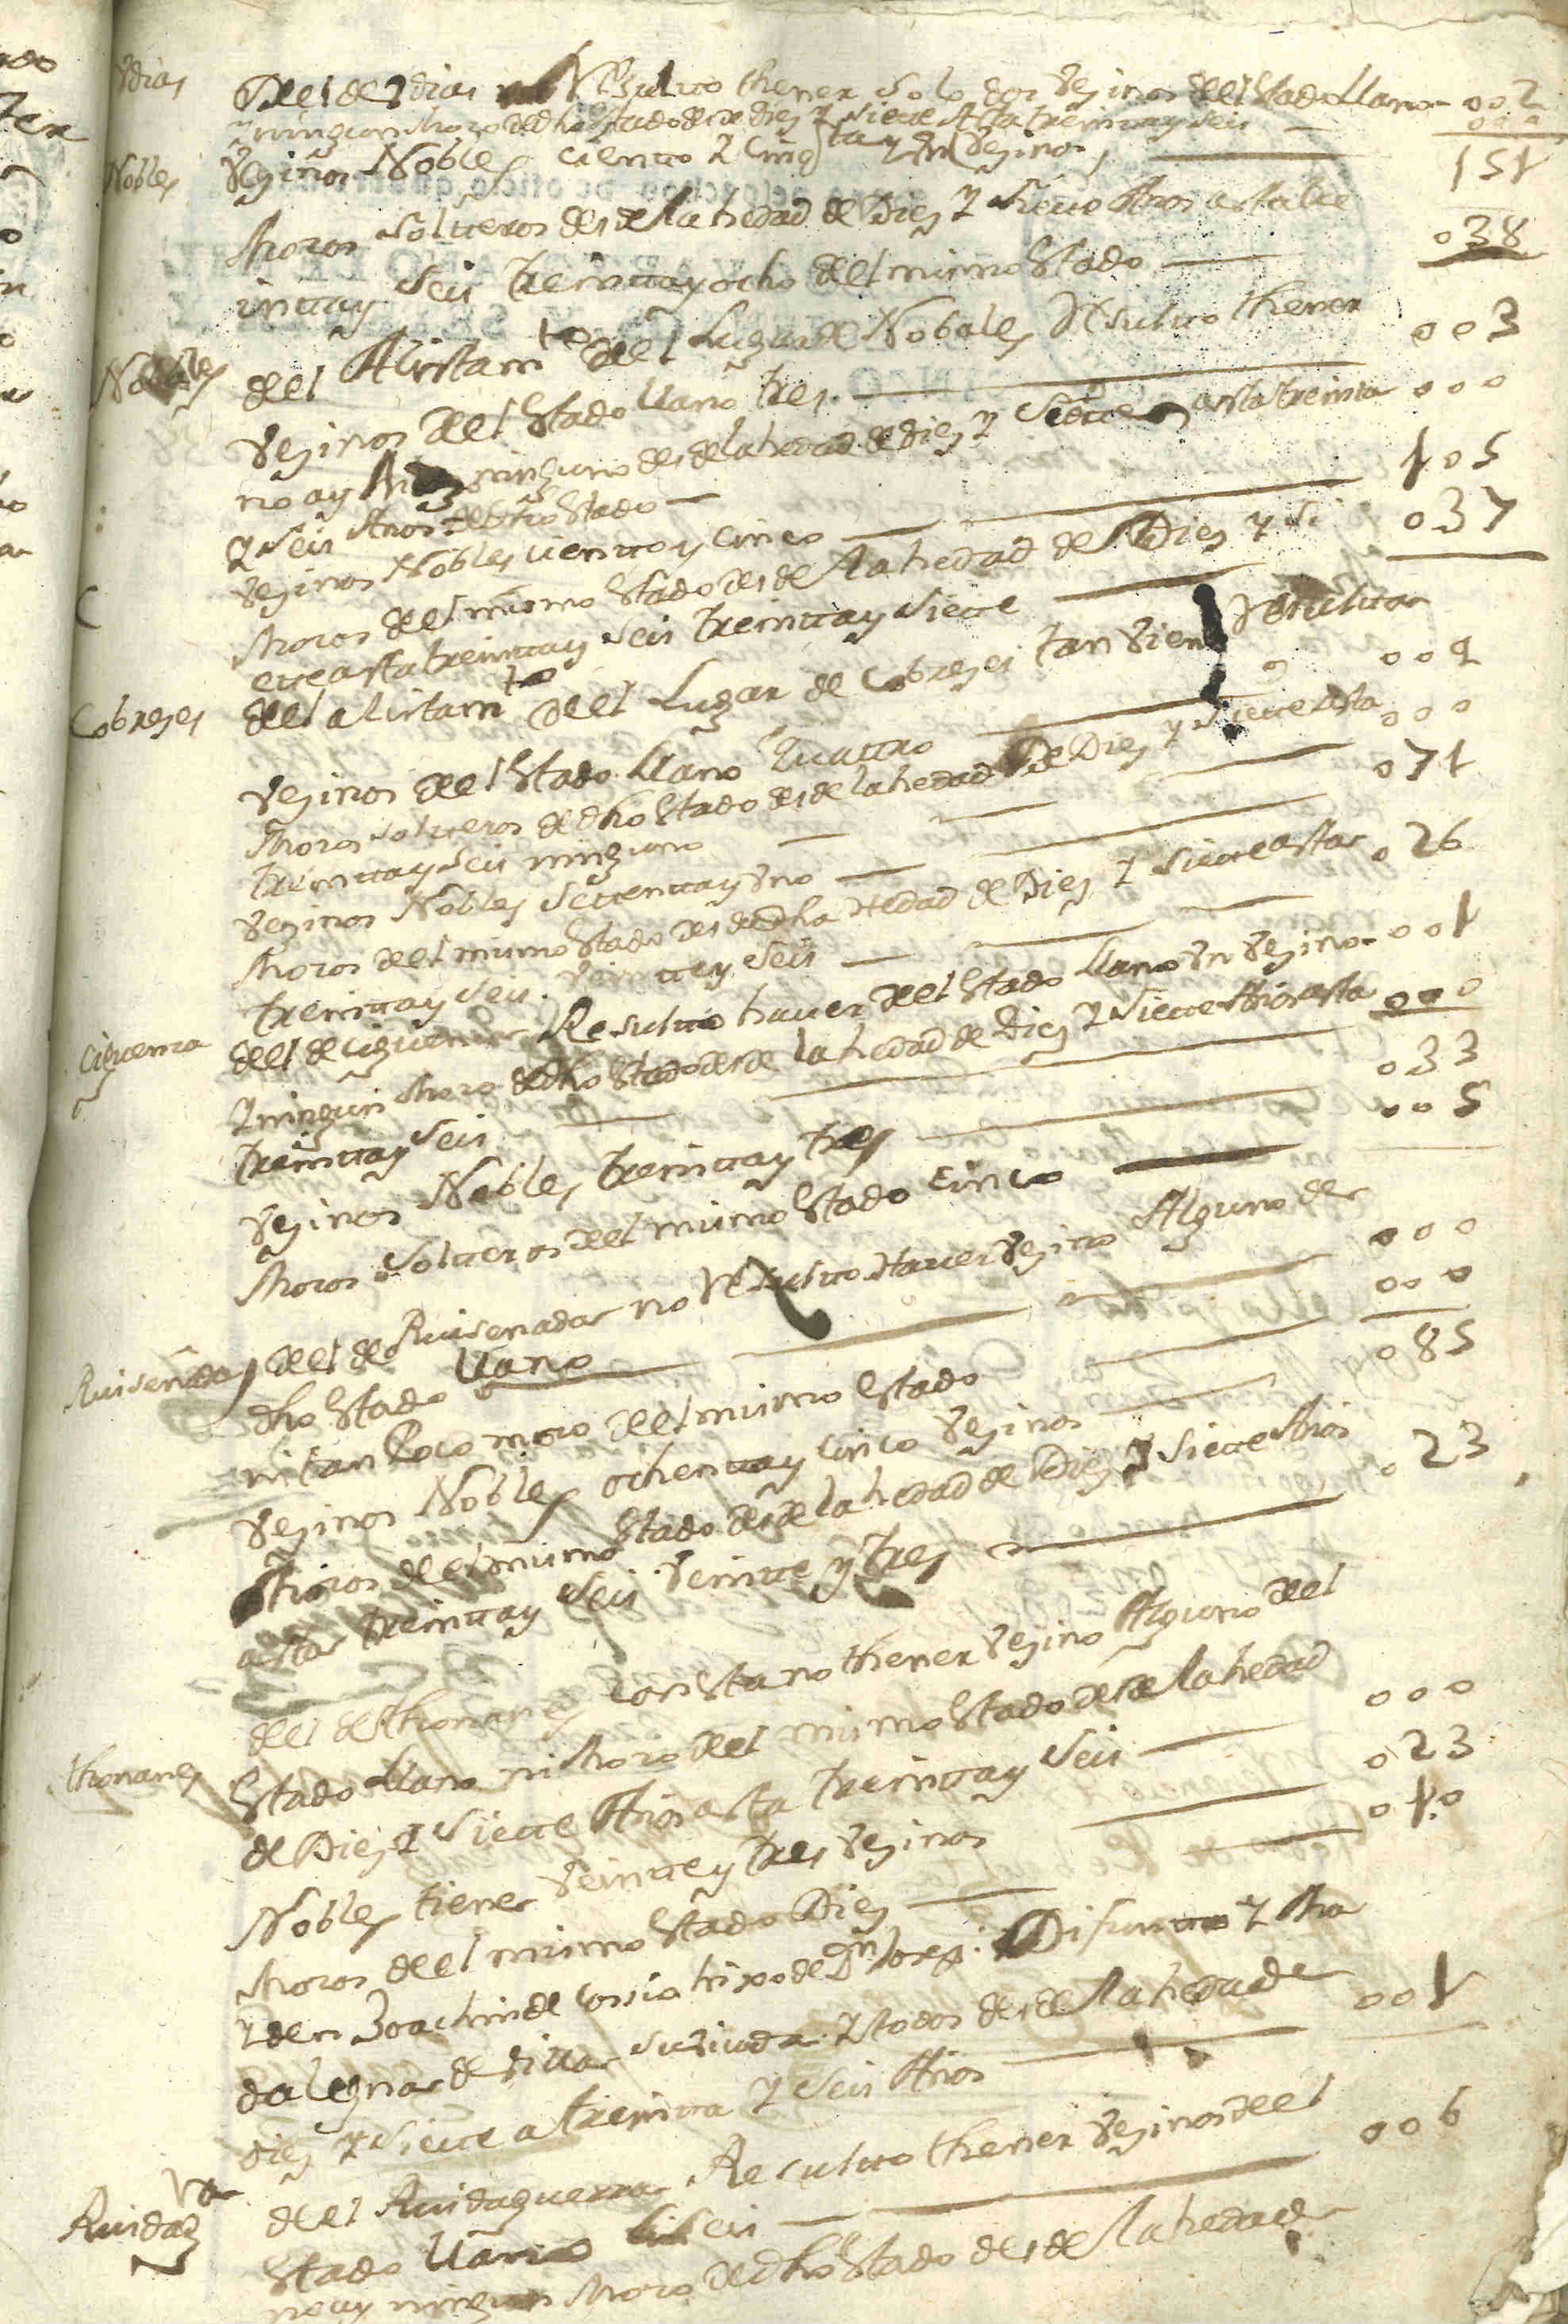 Ydias Del de Ydias Resulto thener solo dos Vezinos del estado llano - 002
Y ningun mozo de dho estado desde diez Y siete Asta treinta y seis — 000
Nobles Vezinos Nobles ciento Y cinqta y Un Vezinos, — 151
Mozos solteros desde la hedad de Diez Y siete Años asta tre
inta y seis treinta y ocho del mismo estado — 038
Nobales del Alistamto del Lugar de Nobales Resulto thener
Vezinos del estado llano tres. — 003
no ay ninguno desde la hedad de diez Y siete asta treinta 000
Y seis Años de dho estado —
Vezinos Nobles ciento y cinco — 105
Mozos del mismo estado desde la hedad de Diez Y si
ette asta treinta y seis treinta y siete — 037
Cobrezes del alistamto del Lugar de Cobrezes tan Vien Resultar
Vezinos del estado llano Quattro — 004
Mozos solteros de dho estado desde la hedad de Diez y siete asta 000
treinta y seis ninguno —
Vezinos Nobles settenta y Uno — 071
Mozos del mismo estado desde dha hedad de Diez Y siete astar 026
treinta y seis. Veinte y seis —
Ciguenza del de Ciguenza Resulto hauer del estado llano Un Vezino - 001
Y ningun Mozo de dho estado desde la hedad de Diez Y siete Años asta 000
treinta y seis —
Vezinos Nobles treinta y tres — 033
Mozos solteros del mismo estado cinco — 005
Ruiseñada del de Ruisenadar no Resulto Hauer Vezino Alguno de
dho estado llano — 000
ni tan Poco mozo del mismo estado 000
Vezinos Nobles ochenta y cinco Vezinos — 085
Mozos del mismo estado desde la hedad de Diez Y siete Años
astar treinta y seis Veinte y tres — 023
thonanes del de thonanes consta no thener Vezino Alguno del
estado llano ni Mozo del mismo estado desde la hedad
de Diez Y siete Años asta treinta y seis — 000
Nobles tiener Veinte y tres Vezinos 023
Mozos del mismo estado Diez — 010
Y den Joachin de Cossio hixo de Dn Jorge Difunto Y Ma
da de Villar su Viuda Y todos desde la hedad de
diez Y siete a treinta Y seis Años — 001
Ruidagra del Ruidaguerra Resulto thener Vezinos del
estado llano seis — 006
no ay ningun Mozo de dho estado desde la hedad de